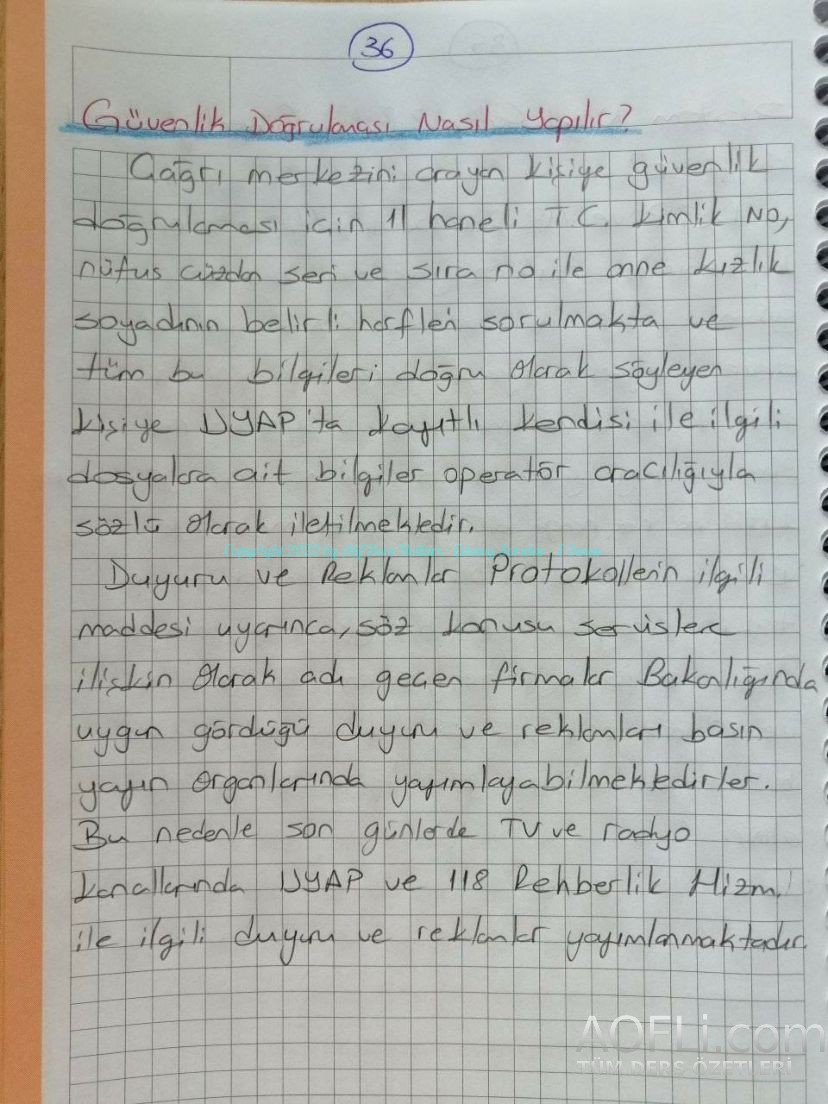 36
Güvenlik Doğrulaması Nasıl Yapılır?
Çağrı merkezini arayan kişiye güvenlik
doğrulaması için 11 haneli T.C. Kimlik No,
nüfus cüzdan seri ve sıra no ile anne kızlık
soyadının belirli harfleri sorulmakta ve
tüm bu bilgileri doğru olarak söyleyen
kişiye UYAP'ta kayıtlı kendisi ile ilgili
dosyalara ait bilgiler operatör aracılığıyla
sözlü olarak iletilmektedir.
Duyuru ve Reklamlar Protokollerin ilgili
maddesi uyarınca, söz konusu servislere
ilişkin olarak adı geçen firmalar Bakanlığında
uygun gördüğü duyuru ve reklamları basın
yayın organlarında yayımlayabilmektedirler.
Bu nedenle son günlerde TV ve radyo
kanallarında UYAP ve 118 Rehberlik Hizm.
ile ilgili duyuru ve reklamlar yayımlanmaktadır.
AOFLi.com
TÜM DERS ÖZETLERİ